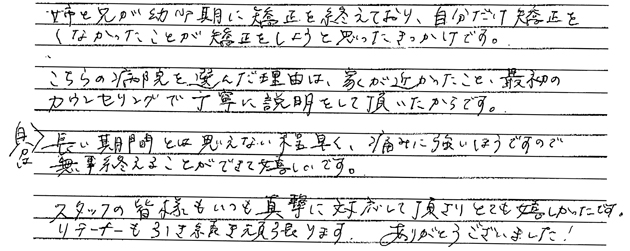 姉と兄が幼少期に矯正を終えており、自分だけ矯正を
しなかったことが矯正をしようと思ったきっかけです。
こちらの病院を選んだ理由は、家が近かったこと、最初の
カウンセリングで丁寧に説明をして頂いたからです。
長い期間とは思えない程早く、痛みに強いほうですので
無事終えることができて嬉しいです。
スタッフの皆様もいつも真摯に対応して頂きとても嬉しかったです。
リテーナーも引き続き頑張ります。 ありがとうございました!